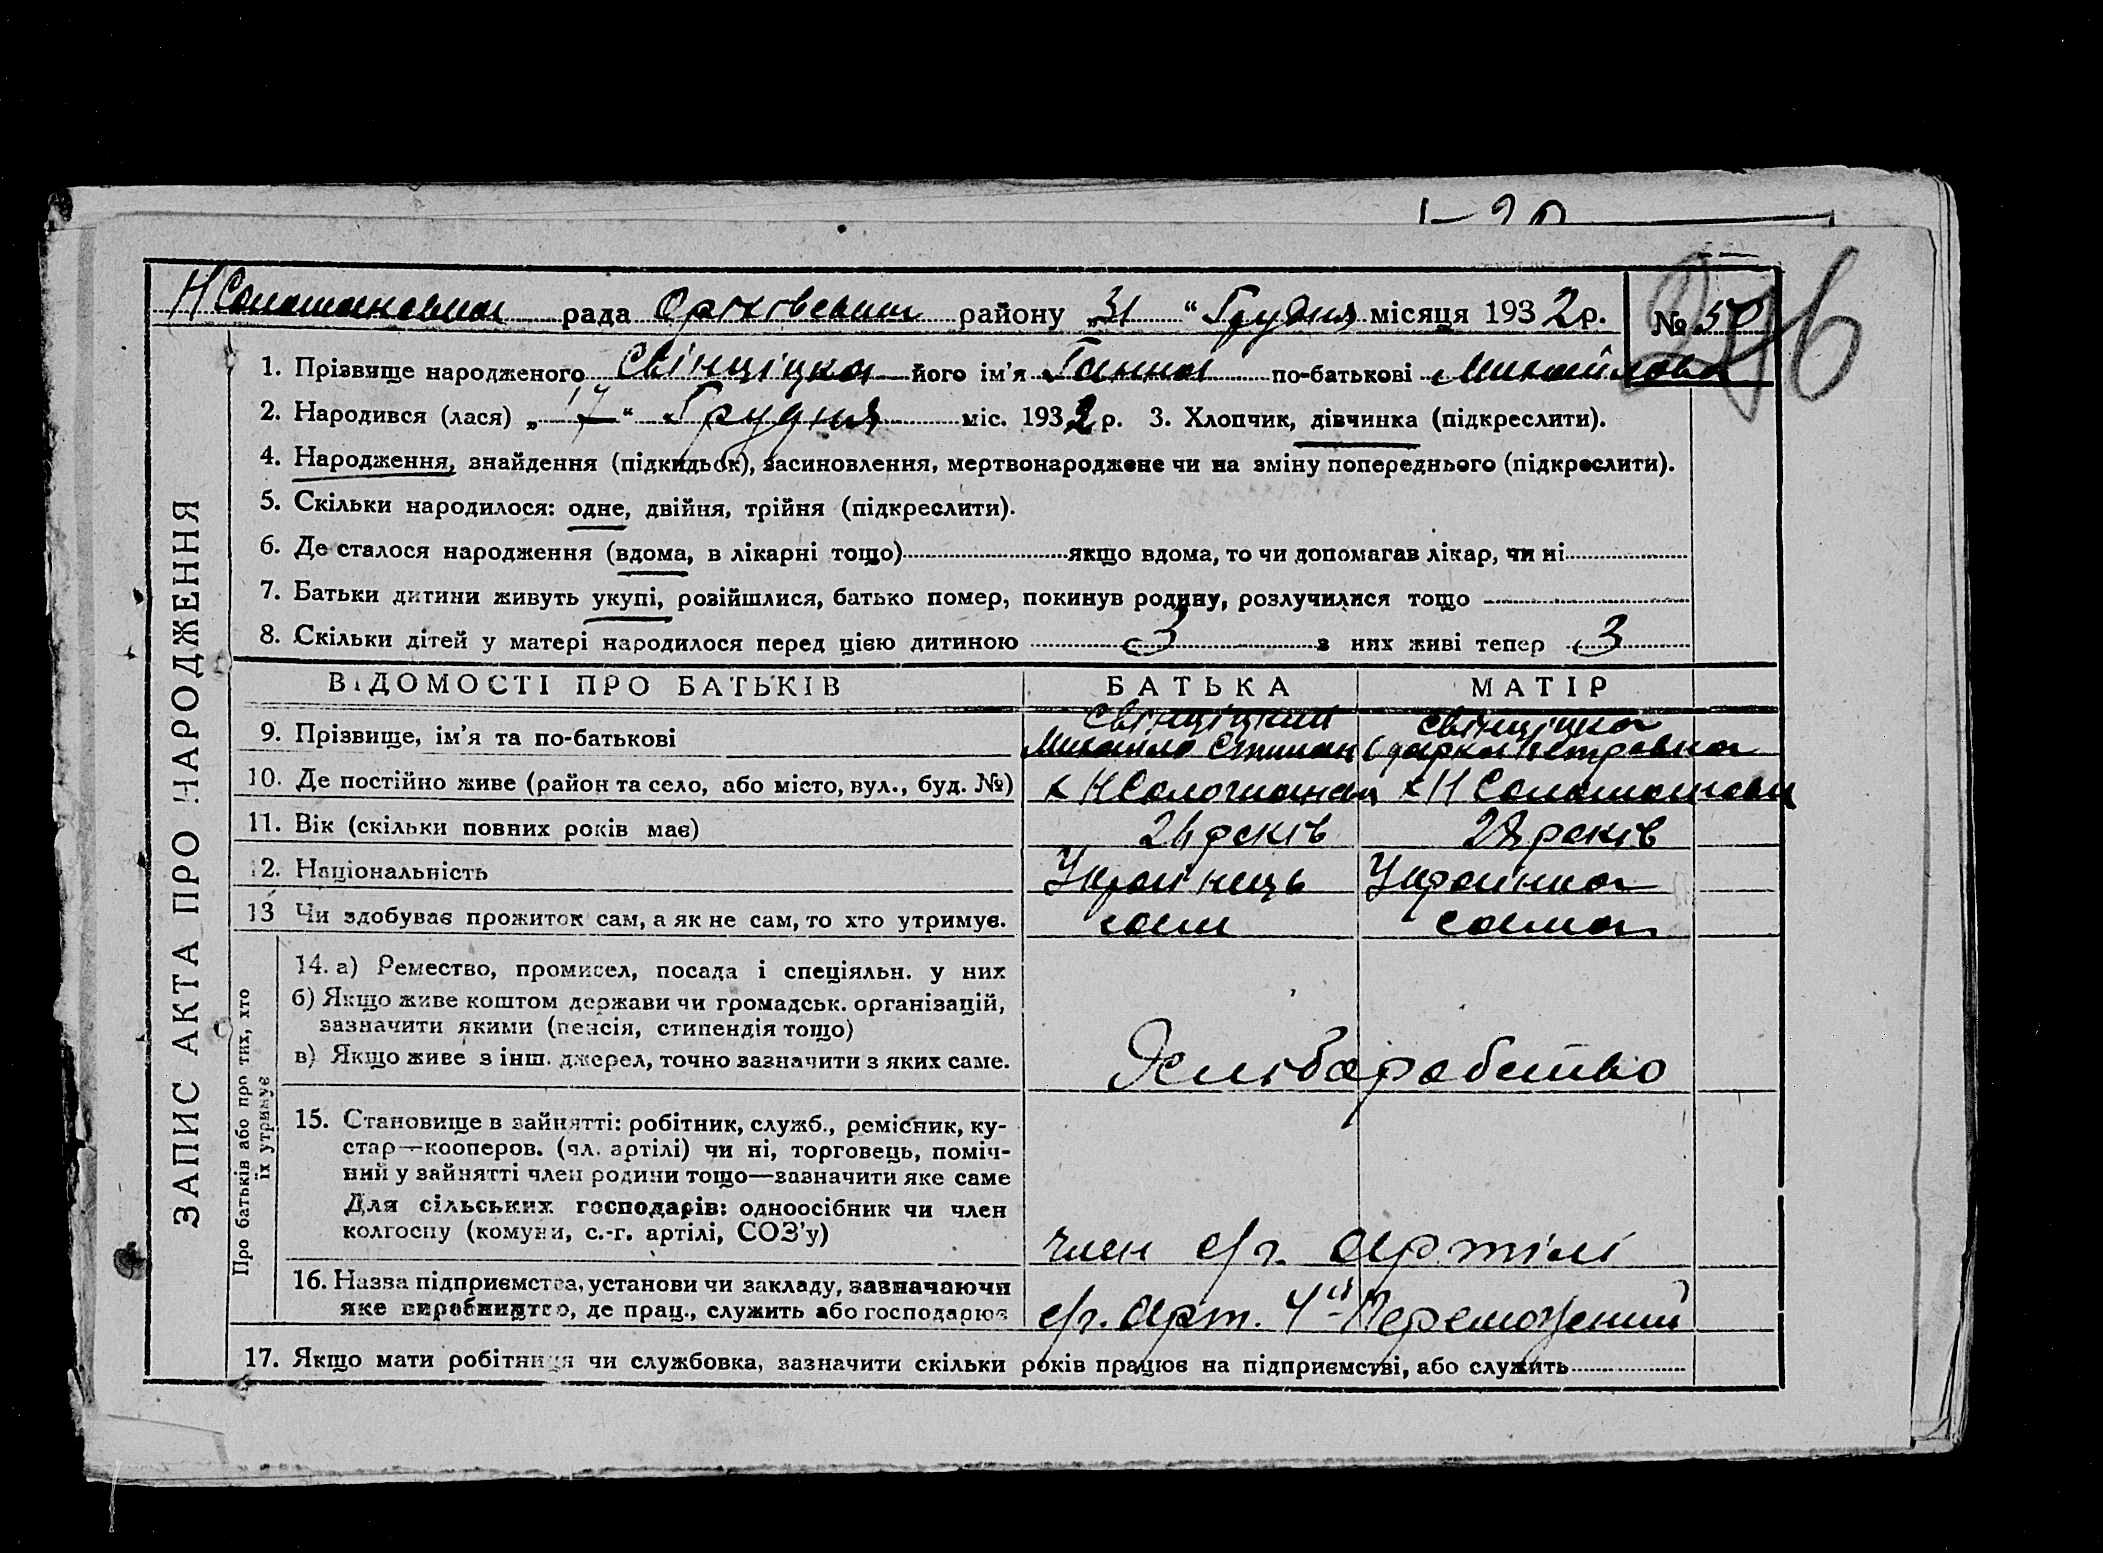 рада Оріхівськ району "31" Грудня місяця 1932 р. № 50
246
1. Прізвище народженого Свінціцка його ім'я Ганна по-батькові Михайлов
2. Народився (лася) „17“ Грудня міс. 1932 р. 3. Хлопчик, дівчинка (підкреслити).
4. Народження, знайдення (підкидьок), засиновлення, мертвонароджене чи на зміну попереднього (підкреслити).
5. Скільки народилося: одне, двійня, трійня (підкреслити).
6. Де сталося народження (вдома, в лікарні тощо) якщо вдома, то чи допомагав лікар, чи ні
7. Батьки дитини живуть укупі, розійшлися, батько помер, покинув родину, розлучилися тощо
8. Скільки дітей у матері народилося перед цією дитиною 3 з них живі тепер 3
ВІДОМОСТІ ПРО БАТЬКІВ БАТЬКА МАТІР
Свінціцкий Свінціцка
9. Прізвище, ім'я та по-батькові Михайло Степан Одарка Петровна
10. Де постійно живе (район та село, або місто, вул., буд. №)
11. Вік (скільки повних років має) років 28 років
12. Національність Українець Українка
13 Чи здобуває прожиток сам, а як не сам, то хто утримує. сам сама
14. а) Ремество, промисел, посада і спеціяльн. у них
б) Якщо живе коштом держави чи громадськ. організацій,
зазначити якими (пенсія, стипендія тощо)
в) Якщо живе з інш. джерел, точно зазначити з яких саме.
Хліборобство
15. Становище в зайнятті: робітник, служб., ремісник, ку-
стар—кооперов. (чл. артілі) чи ні, торговець, поміч-
ний у зайнятті член родини тощо—зазначити яке саме
Для сільських господарів: одноосібник чи член
колгоспу (комуни, с.-г. артілі, СОЗ'у) член с/г. артілі
16. Назва підприємства, установи чи закладу, зазначаючи
яке виробництво, де прац., служить або господарює с/г. Арт. Переможений
17. Якщо мати робітниця чи службовка, зазначити скільки років працює на підприємстві, або служить
ЗАПИС АКТА ПРО НАРОДЖЕННЯ
Про батьків або про тих, хто
їх утримує